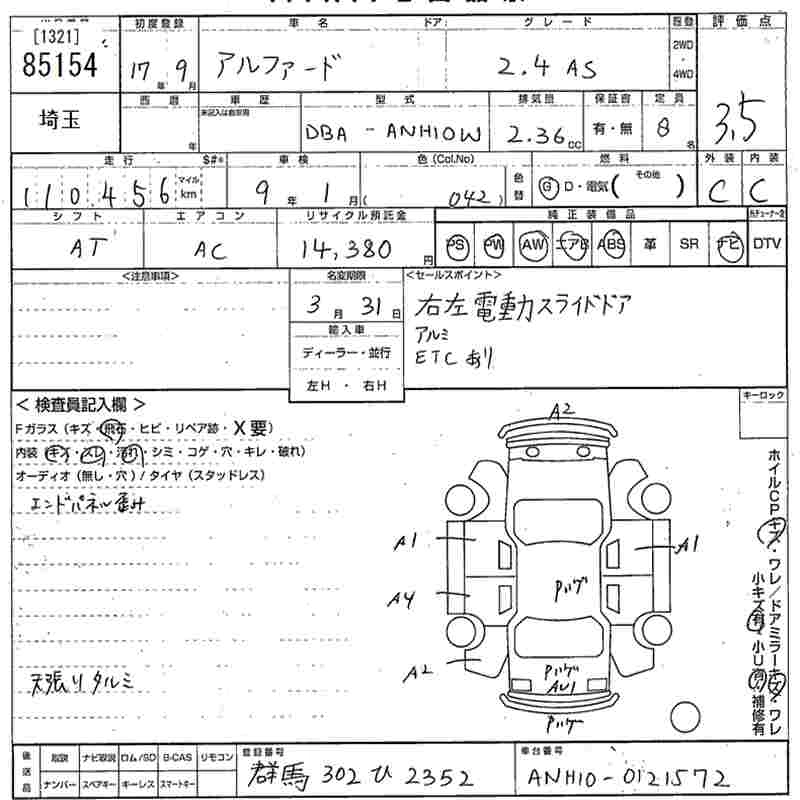 [1321]
85154
初度登録
17年 9月
車名
ドア:
グレード
アルファード
2.4 AS
履歴
2WD
・
4WD
評価点
3.5
埼玉
西暦
年
車歴
未記入は自家用
型式
DBA - ANH10W
排気量
2.36cc
保証書
有・無
定員
8名
走行
S#*
110,456
マイル
km
車検
9年 1月
色(Col.No)
( 042 )
色替
燃料
G D・電気( その他 )
外装
C
内装
C
シフト
AT
エアコン
AC
リサイクル預託金
14,380円
純正装備品
PS PW AW エアB ABS 革 SR ナビ
DTV
<注意事項>
名変期限
3月 31日
輸入車
ディーラー・並行
左H ・ 右H
<セールスポイント>
右左電動スライドドア
アルミ
ETCあり
< 検査員記入欄 >
Fガラス(キズ・飛石・ヒビ・リペア跡・X要)
内装(キズ・スレ・汚れ・シミ・コゲ・穴・キレ・破れ)
オーディオ(無し・穴)/タイヤ(スタッドレス)
エンドパネル歪み
天張りタルミ
キーロック
A2
A1
A1
A4
Pハゲ
A2
Pハゲ
AU1
Pハゲ
ホイルCPキズ・ワレ/ドアミラーキズ・ワレ
小キズ有・小U有・補修有
後送品
取説 ナビ取説 ロム/SD B-CAS リモコン
ナンバー スペアキー キーレス スマートキー
登録番号
群馬 302 ひ 2352
車台番号
ANH10-0121572